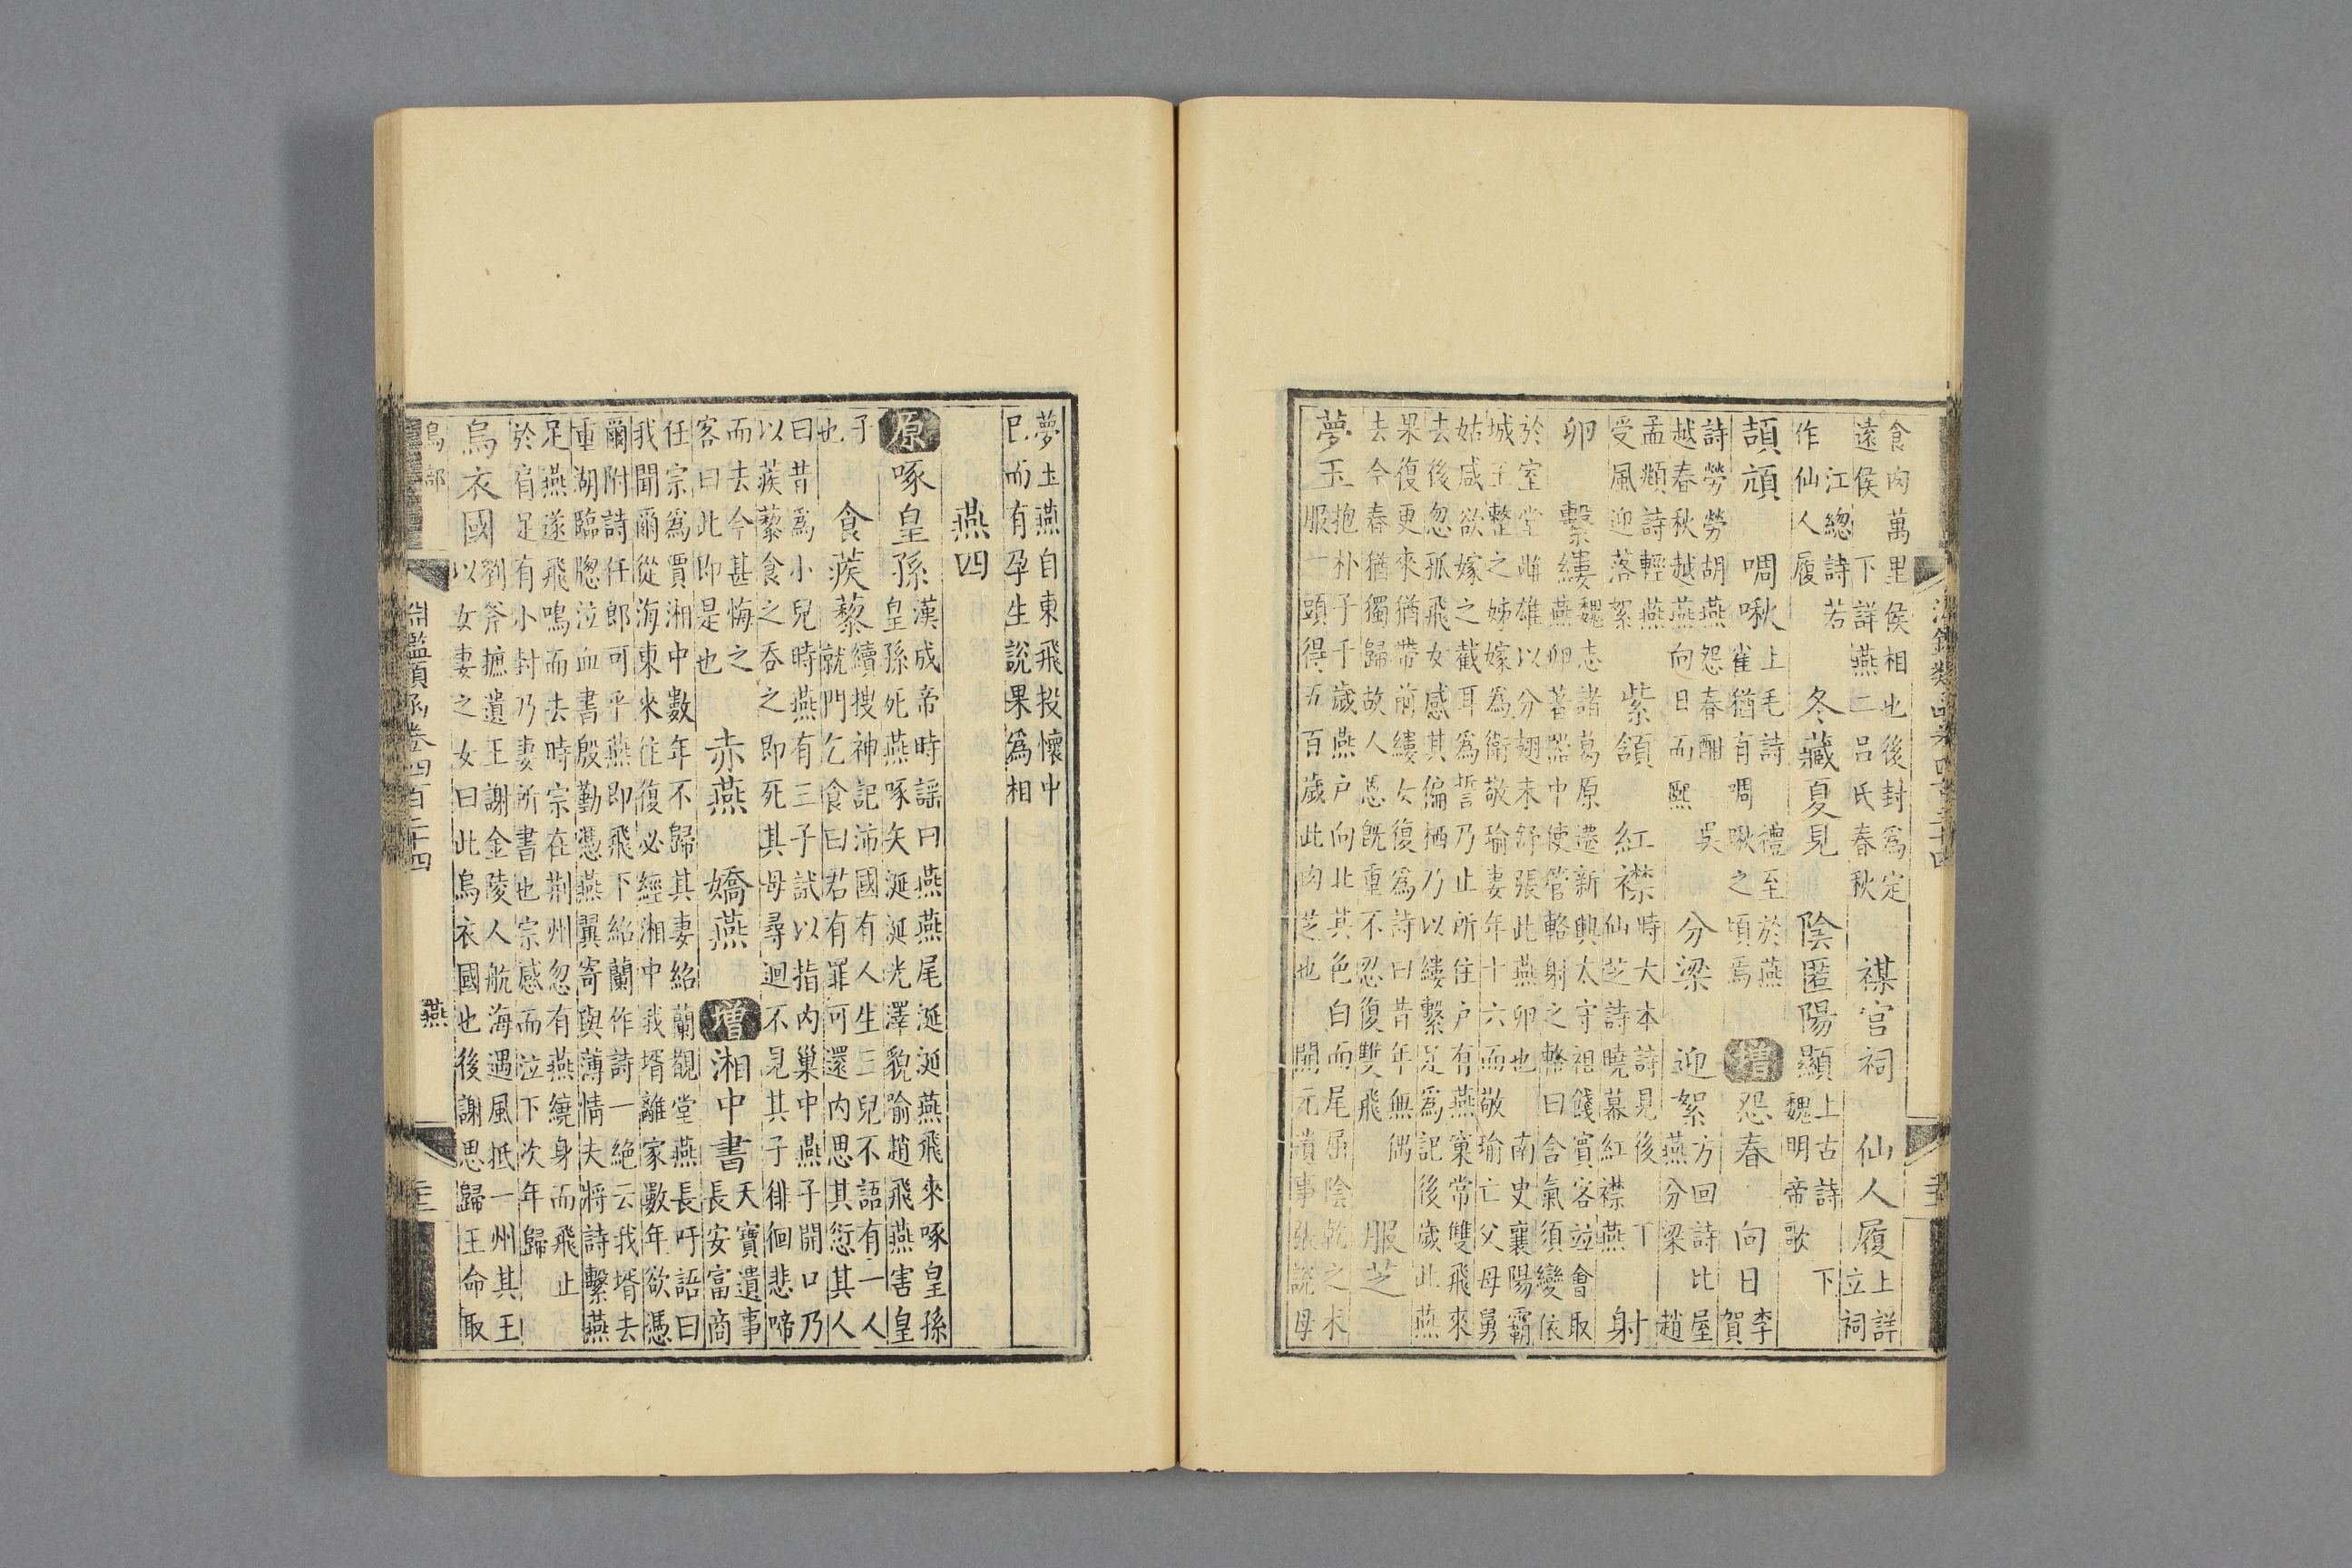 食肉萬里侯相也後封爲定
遠侯下詳燕二呂氏春秋
禖宫祠 仙人履
上詳
立祠
江總詩若
作仙人履
冬藏夏見 陰匿陽顯
上古詩下
魏明帝歌
頡頏 啁啾
上毛詩禮至於燕
雀猶有啁啾之頃焉
增 怨春 向日
李
賀
詩勞勞胡燕怨春酣 吳
越春秋越燕向日而熙
分梁 迎絮
方回詩比屋
燕分梁 趙
孟頫詩輕燕
受風迎落絮
紫頷 紅襟
時大本詩見後丁
仙芝詩曉幕紅襟燕
射
卵 繫縷
魏志諸葛原遷新興太守祖餞賓客竝會取
燕卵著器中使管輅射之輅曰含氣須變依
於室堂雌雄以分翅未舒張此燕卵也 南史襄陽霸
城王整之姊嫁爲衛敬瑜妻年十六而敬瑜亡父母舅
姑咸欲嫁之截耳爲誓乃止所住戶有燕窠常雙飛來
去後忽孤飛女感其偏栖乃以縷繫足爲記後歲此燕
果復更來猶帶前縷女復爲詩曰昔年無偶
去今春猶獨歸故人恩既重不忍復雙飛
服芝
夢玉
抱朴子千歲燕戶向北其色白而尾屈陰乾之末
服一頭得五百歲此肉芝也 開元遺事張說母
夢玉燕自東飛投懷中
已而有孕生說果爲相
燕四
原 啄皇孫
漢成帝時謡曰燕燕尾涎涎燕飛來啄皇孫
皇孫死燕啄矢涎涎光澤貌喻趙飛燕害皇
子
也
食蒺藜
續搜神記沛國有人生三兒不語有一人
就門乞食曰君有罪可還内思其愆其人
曰昔爲小兒時燕有三子試以指内巢中燕子開口乃
以蒺藜食之吞之即死其母尋迴不見其子徘徊悲啼
而去今甚悔之
客曰此即是也
赤燕 嬌燕 增 湘中書
天寶遺事
長安富商
任宗爲賈湘中數年不歸其妻紹蘭覩堂燕長吁語曰
我聞爾從海東來往復必經湘中我壻離家數年欲憑
爾附詩任郎可乎燕即飛下紹蘭作詩一絶云我壻去
重湖臨牕泣血書慇勤憑燕翼寄與薄情夫將詩繫燕
足燕遂飛鳴而去時宗在荆州忽有燕繞身而飛止
於肩足有小封乃妻所書也宗感而泣下次年歸
烏衣國
劉斧摭遺王謝金陵人航海遇風抵一州其王
以女妻之女曰此烏衣國也後謝思歸王命取
鳥部
淵鑑類函卷四百二十四
燕